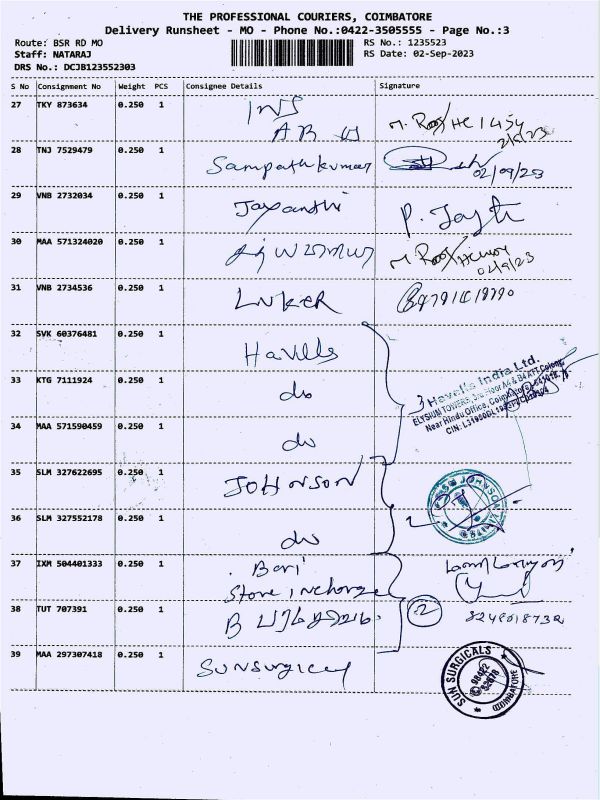 THE PROFESSIONAL COURIERS, COIMBATORE
Delivery Runsheet - MO - Phone No.:0422-3505555 - Page No.:3
Route: BSR RD MO
Staff: NATARAJ
DRS No.: DCJB123552303
RS No.: 1235523
RS Date: 02-Sep-2023
S No Consignment No Weight PCS Consignee Details Signature
27 TKY 873634 0.250 1 INS
02/9/23
28 TNJ 7529479 0.250 1 Sampathkumar
02/09/23
29 VNB 2732034 0.250 1 Jayanthi
30 MAA 571324020 0.250 1
02/9/23
31 VNB 2734536 0.250 1 LUKER
32 SVK 60376481 0.250 1 Havells
33 KTG 7111924 0.250 1 do
3 Havells India Ltd.
ELYSIUM TOWERS, 3rd Floor
Near Hindu Office,
34 MAA 571590459 0.250 1 do
35 SLM 327622695 0.250 1 JOHNSON
36 SLM 327552178 0.250 1 do
2
37 IXM 504401333 0.250 1
Store incharge
38 TUT 707391 0.250 1
2
39 MAA 297307418 0.250 1 Sunsurgical
SUN SURGICALS
COIMBATORE